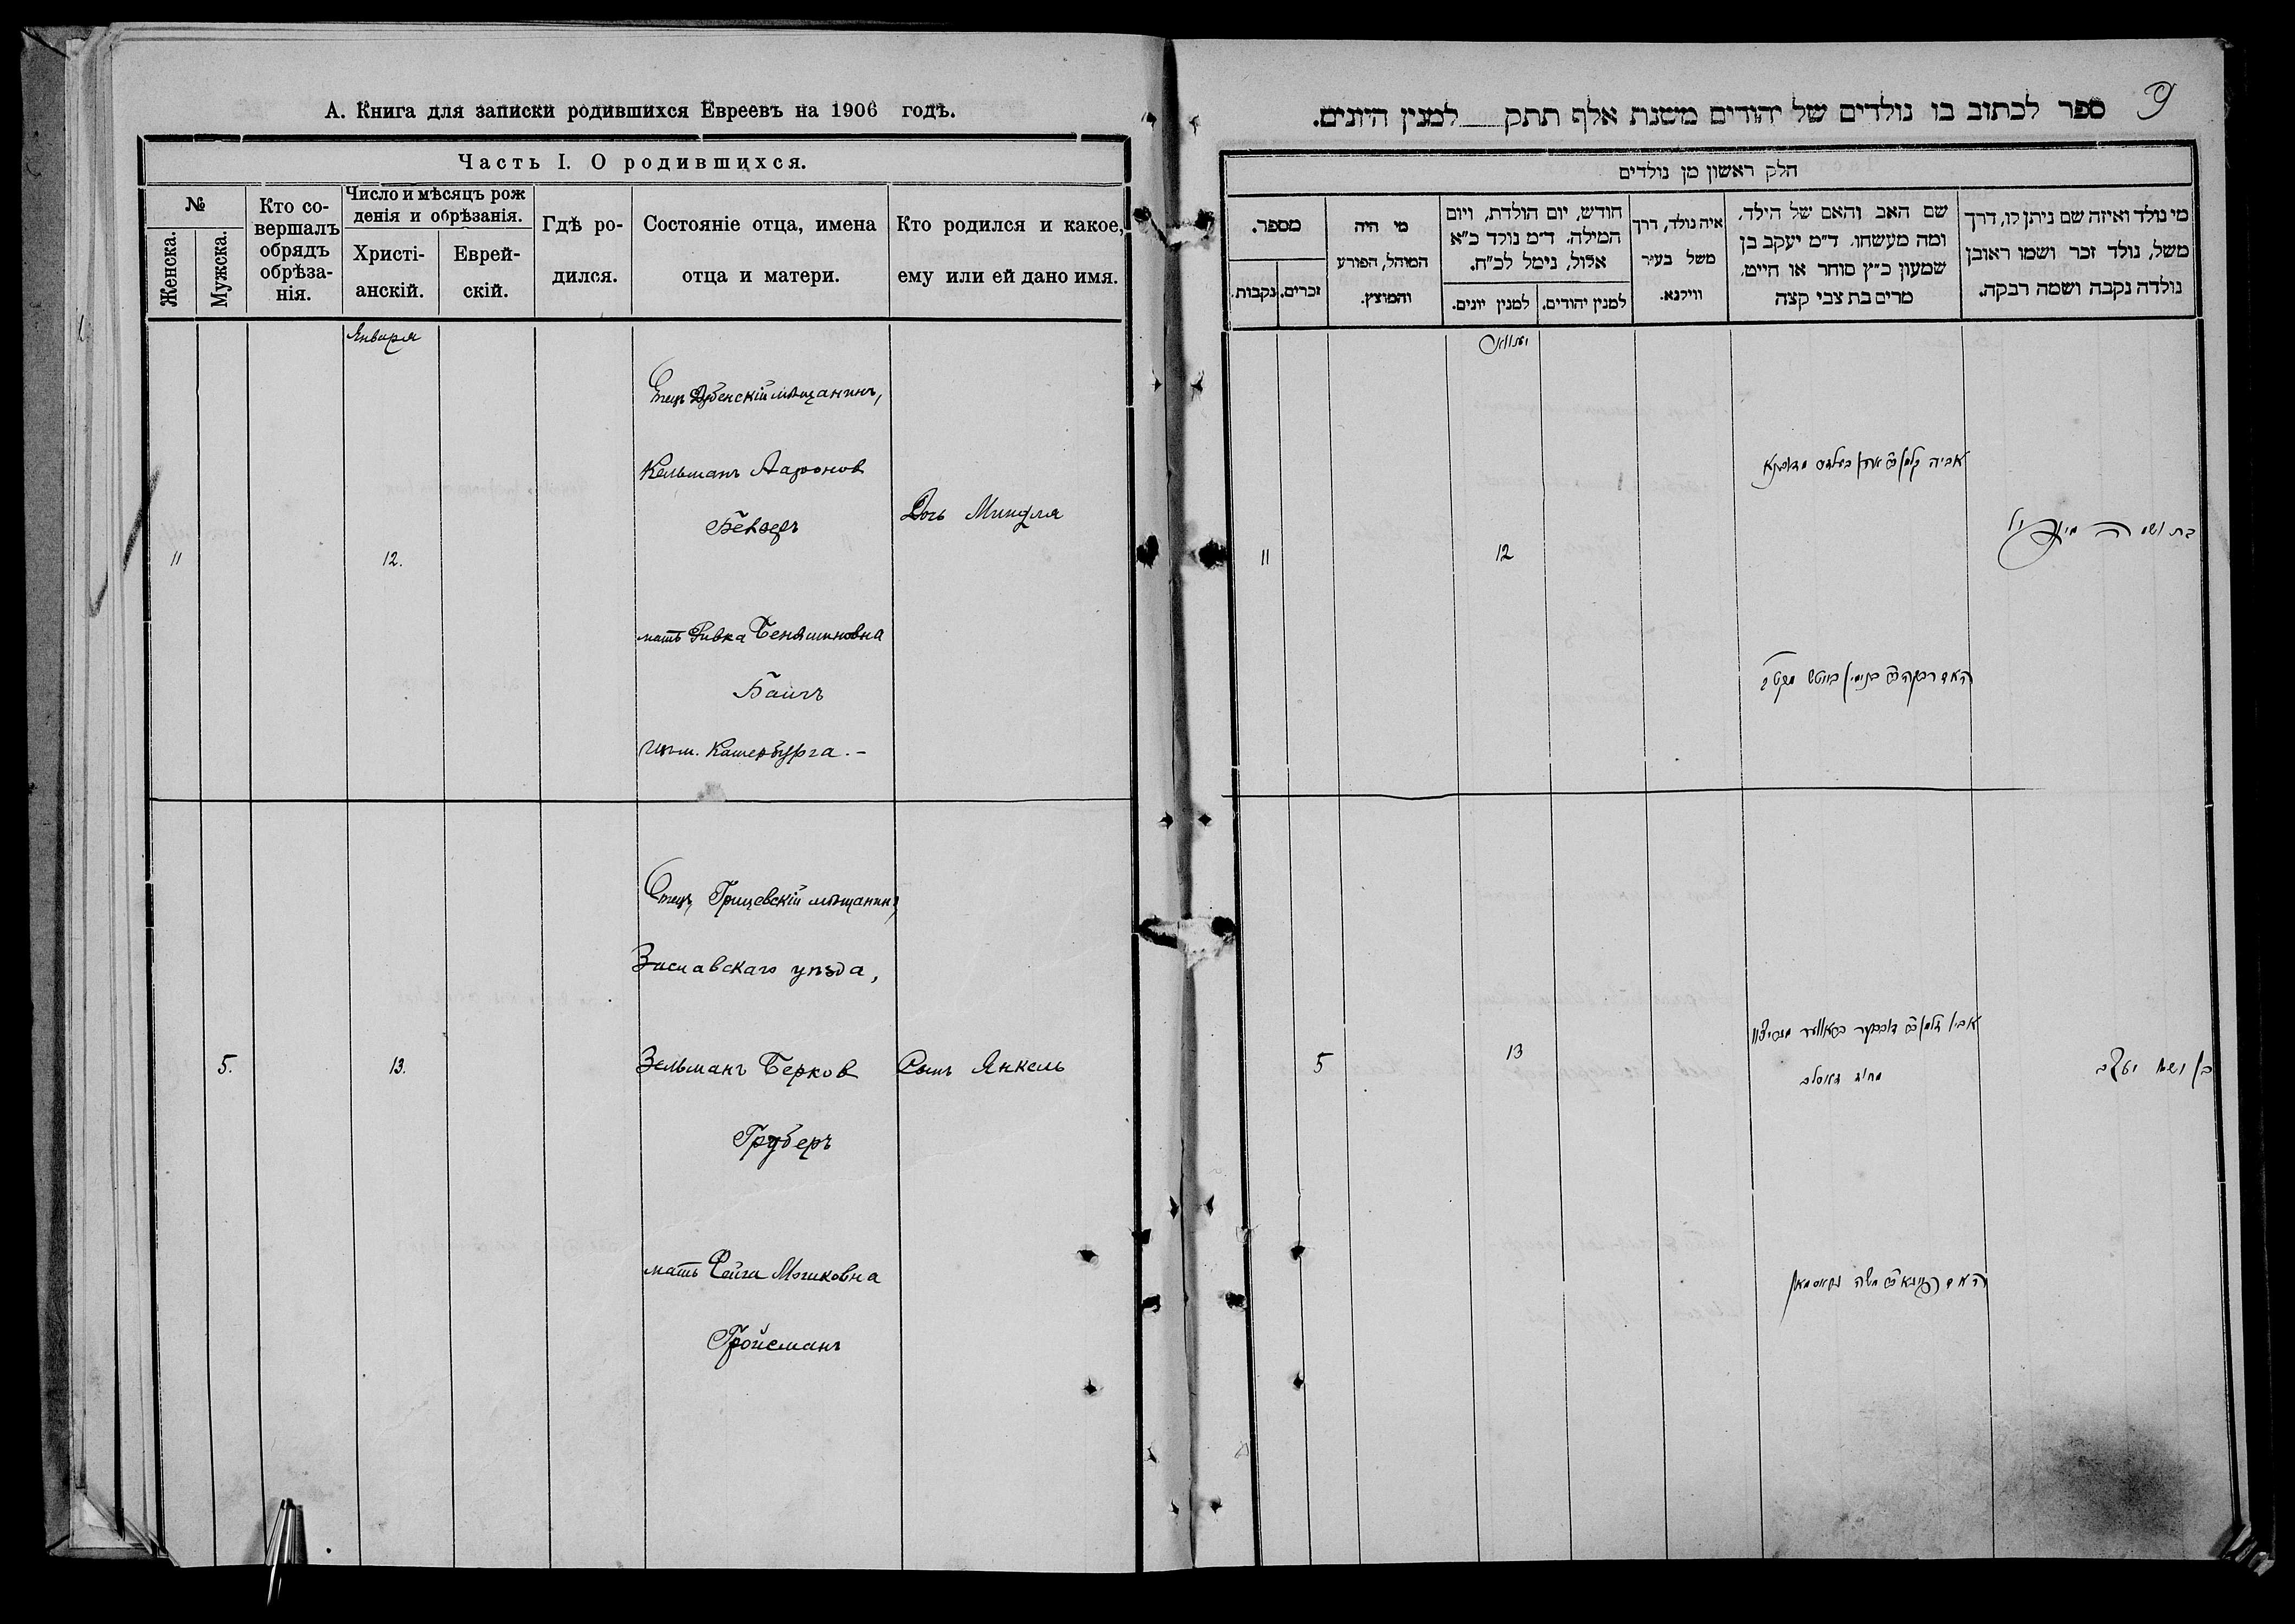 А. Книга для записки родившихся Евреевъ на 1906 годъ.
Часть I. О родившихся.
№
Женска.
Мужска.
Кто со-
вершалъ
обрядъ
обрѣза-
нія.
Число и мѣсяцъ рож
денія и обрѣзанія.
Христі-
анскій.
Еврей-
скій.
Гдѣ ро-
дился.
Состояніе отца, имена
отца и матери.
Кто родился и какое,
ему или ей дано имя.
Января
Отецъ Дубенскій мѣщанинъ,
Кельманъ Аароновъ
11
12.
Дочь Миндля
мать Ривка Беняминовна
Отецъ Грицевскій мѣщанинъ,
Заславскаго уѣзда,
5.
13.
Зельманъ Берков
Сынъ Янкель
Груберъ
мать Фейга Мошковна
Гройсманъ
9
ספר לכתוב בו נולדים של יהודים משנת אלף תתק למנין היונים.
חלק ראשון מן נולדים
מספר.
נקבות.
זכרים.
מי היה
המוהל, הפורע
והמוצץ.
חודש, יום הולדת, ויום
המילה. ד״מ נולד כ״א
אלול, נימל לכ״ח.
למנין יונים.
למנין יהודים.
איה נולד, דרך
משל בעיר
ווילנא.
שם האב והאם של הילד,
ומה מעשהו. ד״מ יעקב בן
שמעון כ״ץ סוחר או חייט,
מרים בת צבי קצה
מי נולד ואיזה שם ניתן לו, דרך
משל, נולד זכר ושמו ראובן
נולדה נקבה ושמה רבקה.
יאנוואר
11
12
5
13
בן ושמו יעקב